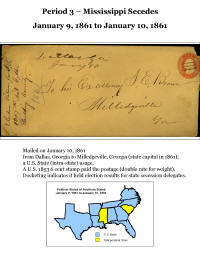 Period 3 – Mississippi Secedes
January 9, 1861 to January 10, 1861
To his Excellency J E Brown
Milledgeville
Ga
Mailed on January 10, 1861
from Dallas, Georgia to Milledgeville, Georgia (state capital in 1861);
a U.S. State (intra-state) usage.
A U.S. 1853 6 cent stamp paid the postage (double rate for weight).
Docketing indicates it held election results for state secession delegates.
Political Status of Southern States
January 9, 1861 to January 10, 1861
U.S. State
Independent State